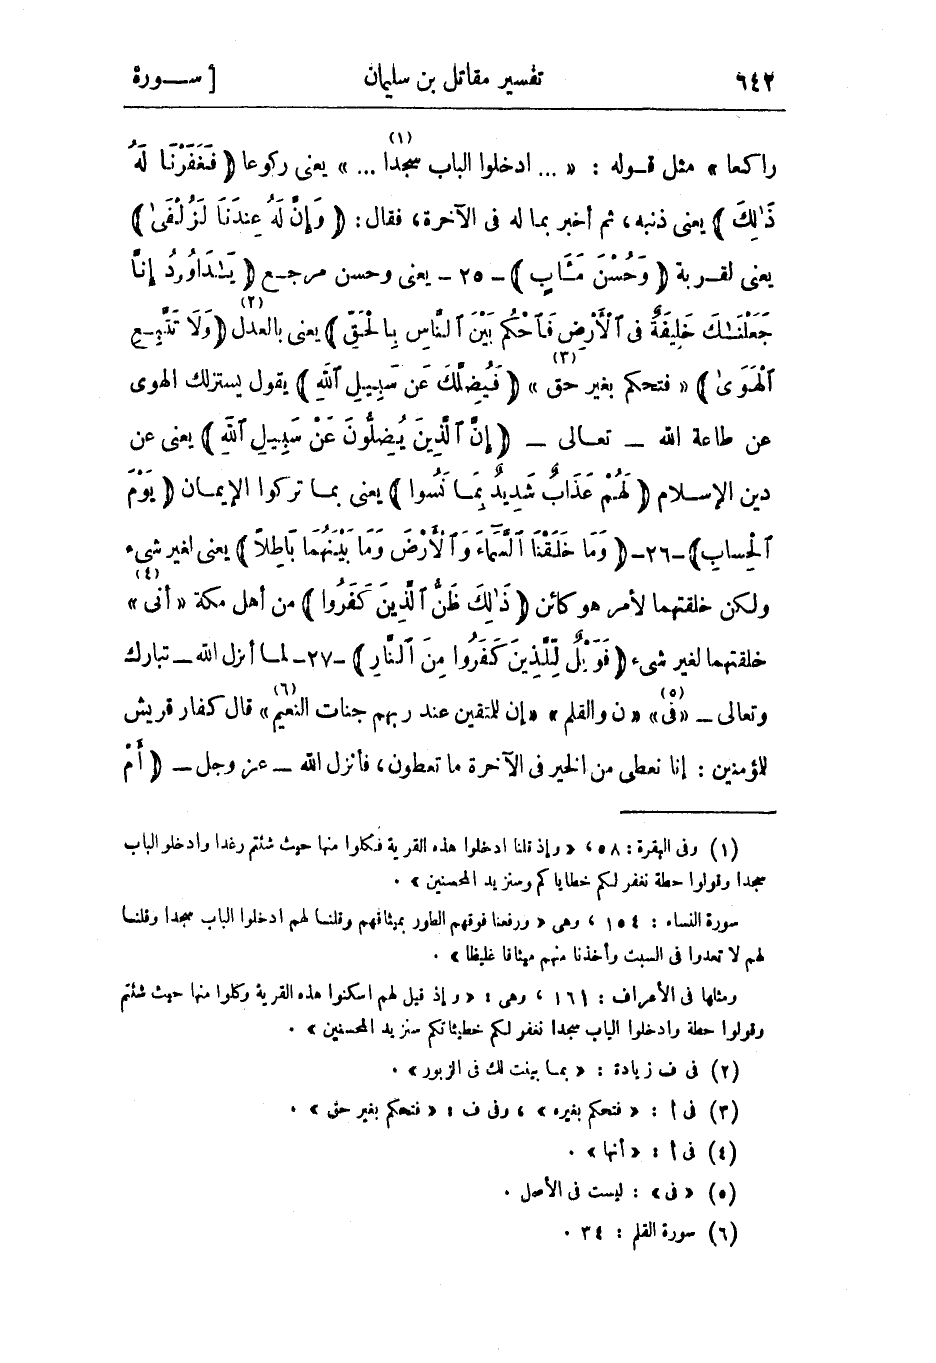 ٦٤٢ تفسير مقاتل بن سليمان [ ســـورة
راكعا » مثل قـوله : « ... ادخلوا الباب سجدا (١) ... » يعنى ركوعا ( فَغَفَرْنَا لَهُ
ذَٰلِكَ ) يعنى ذنبه، ثم أخبر بما له فى الآخرة، فقال: ( وَإِنَّ لَهُ عِندَنَا لَزُلْفَىٰ )
يعنى لقربة ( وَحُسْنَ مَـَٔابٍ ) - ٢٥ - يعنى وحسن مرجـع ( يَـٰدَاوُۥدُ إِنَّا
جَعَلْنَـٰكَ خَلِيفَةً فِى ٱلْأَرْضِ فَٱحْكُم بَيْنَ ٱلنَّاسِ بِٱلْحَقِّ ) يعنى بالعدل (٢) ( وَلَا تَتَّبِـعِ
ٱلْهَوَىٰ ) « فتحكم بغير حق » (٣) ( فَيُضِلَّكَ عَن سَبِيلِ ٱللَّهِ ) يقول يستزلك الهوى
عن طاعة الله ــ تعـالى ــ ( إِنَّ ٱلَّذِينَ يَضِلُّونَ عَنْ سَبِيلِ ٱللَّهِ ) يعنى عن
دين الإسـلام ( لَهُمْ عَذَابٌ شَدِيدٌ بِمَـا نَسُوا ) يعنى بمـا تركوا الإيمـان ( يَوْمَ
ٱلْحِسابِ) -٢٦- ( وَمَا خَلَقْنَا ٱلسَّمَاءَ وَٱلْأَرْضَ وَمَا بَيْنَهُمَا بَاطِلًا ) يعنى لغير شىء
ولكن خلقتهما لأمر هو كائن ( ذَٰلِكَ ظَنُّ ٱلَّذِينَ كَفَرُوا ) من أهل مكة « أنى (٤) »
خلقتهما لغير شىء ( فَوَيْلٌ لِّلَّذِينَ كَفَرُوا مِنَ ٱلنَّارِ ) -٢٧- لمـا أنزل الله ــ تبارك
وتعالى ــ «فى» (٥) « ن والقلم » « إن للمتقين عند ربهم جنات النعيم (٦) » قال كفار قريش
للمؤمنين : إنا نعطى من الخير فى الآخرة ما تعطون، فأنزل الله ــ عز وجل ــ ( أَمْ
(١) وفى البقرة : ٥٨ ، « وإذ قلنا ادخلوا هذه القرية فكلوا منها حيث شئتم رغدا وادخلو الباب
سجدا وقولوا حطة نغفر لكم خطاياكم وسنزيد المحسنين » .
سورة النساء : ١٥٤ ، وهى « ورفعنا فوقهم الطور بميثاقهم وقلنـا لهم ادخلوا الباب سجدا وقلنـا
لهم لا تعدوا فى السبت وأخذنا منهم ميثاقا غليظا » .
ومثلها فى الأعراف : ١٦١ ، وهى : « وإذ قيل لهم اسكنوا هذه القرية وكلوا منها حيث شئتم
وقولوا حطة وادخلوا الباب سجدا نغفر لكم خطيئاتكم سنزيد المحسنين » .
(٢) فى ف زيادة : « بمـا بينت لك فى الزبور » .
(٣) فى أ : « فتحكم بغيره » ، وفى ف : « فتحكم بغير حق » .
(٤) فى أ : « أنها » .
(٥) « فى » : ليست فى الأصل .
(٦) سورة القلم : ٣٤ .